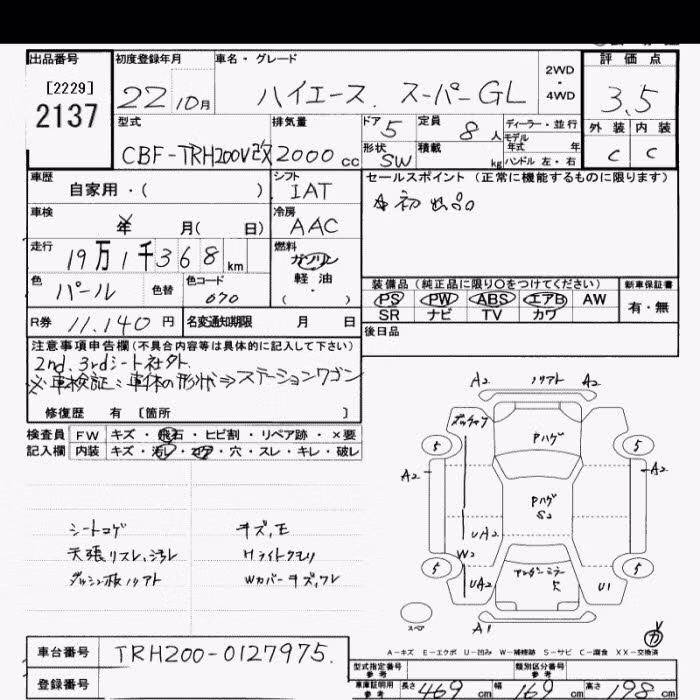 出品番号
[2229]
2137
初度登録年月
22 10月
車名・グレード
ハイエース. スーパーGL
2WD
・
4WD
評価点
3.5
型式
CBF-TRH200V改
排気量
2000 cc
ドア
5
定員
8 人
ディーラー・並行
モデル
年式 年
ハンドル 左・右
形状
SW
積載
kg
外装 内装
C C
車歴
自家用・( )
シフト
IAT
セールスポイント (正常に機能するものに限ります)
初出品
車検
年 月( 日)
冷房
AAC
走行
19万1千368 km
燃料
ガソリン
軽油
( ・ )
色
パール
色替
色コード
070
装備品 (純正品に限り○をつけてください)
PS PW ABS エアB AW
SR ナビ TV カワ
新車保証書
有・無
R券
11.140 円
名変通知期限 月 日
後日品
注意事項申告欄(不具合内容等は具体的に記入して下さい)
2nd、3rdシート社外.
※車検証:車体の形状⇒ステーションワゴン
修復歴 有 [箇所 ]
検査員 FW キズ・飛石・ヒビ割・リペア跡・×要
記入欄 内装 キズ・汚レ・コゲ・穴・スレ・キレ・破レ
シートコゲ
天張リスレ、汚レ
ダッシュ板ノリアト
キズ,E
Hライトクモリ
Wカバーキズ,ワレ
A2 ノリアト A2
Pハゲ
5 5
A2 A2
Pハゲ
S2
UA2
W2
5 5
UA2
アンダーミラー
欠
U1
スペア
A1
A-キズ E-エクボ U-凹み W-補修跡 S-サビ C-腐食 XX-交換済
車台番号
TRH200-0127975.
登録番号
型式指定番号
参考
類別区分番号
参考
車庫証明用
参考
長さ 469 cm 幅 169 cm 高さ 198 cm